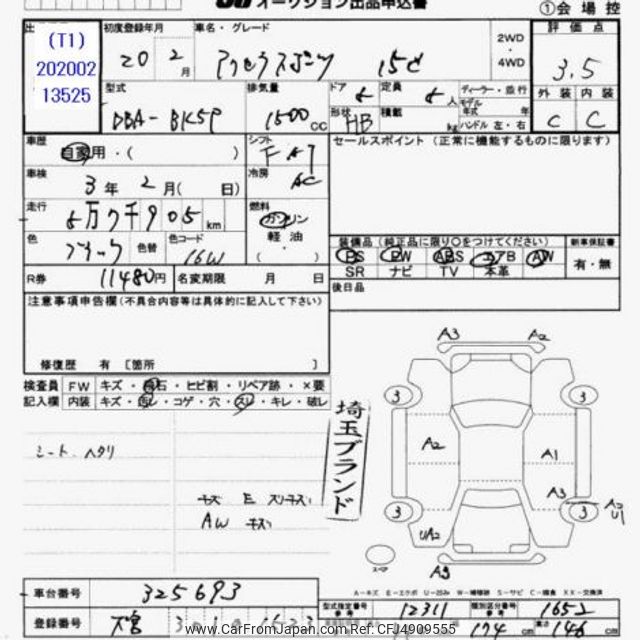 オークション出品申込書
①会場控
(T1)
202002
13525
初度登録年月
20 2月
車名・グレード
アクセラスポーツ 15C
2WD
・
4WD
評価点
3.5
外装 内装
C C
型式
DBA- BK5P
排気量
1500 cc
ドア
5
定員
5人
形状
HB
積載
kg
ディーラー・並行
モデル
年式 年
ハンドル 左・右
車歴
自家用・( )
シフト
FAT
セールスポイント (正常に機能するものに限ります)
車検
3年 2月( 日)
冷房
AC
走行
5万7千905 km
燃料
ガソリン
軽油
( )
色
ブラック
色替
色コード
16W
装備品(純正品に限り○をつけてください)
新車保証書
PS PW ABS エアB AW
SR ナビ TV 本革
有・無
R券 11480円
名変期限 月 日
後日品
注意事項申告欄(不具合内容等は具体的に記入して下さい)
修復歴 有 〔箇所 〕
検査員
記入欄
FW キズ・飛石・ヒビ割・リペア跡・×要
内装 キズ・汚レ・コゲ・穴・スレ・キレ・破レ
シート ヘタリ
キズ E スリキズ
AW キズ
埼玉ブランド
A3 A2
3 3
A2 A1
A3
3 3
A2
U1
UA2
A3
スペア
A-キズ E-エクボ U-凹み W-補修跡 S-サビ C-腐食 XX-交換済
車台番号 325693
登録番号 大宮 301
型式指定番号 12311
類別区分番号 1652
174 cm
高さ 146 cm
www.CarFromJapan.com Ref: CFJ4909555